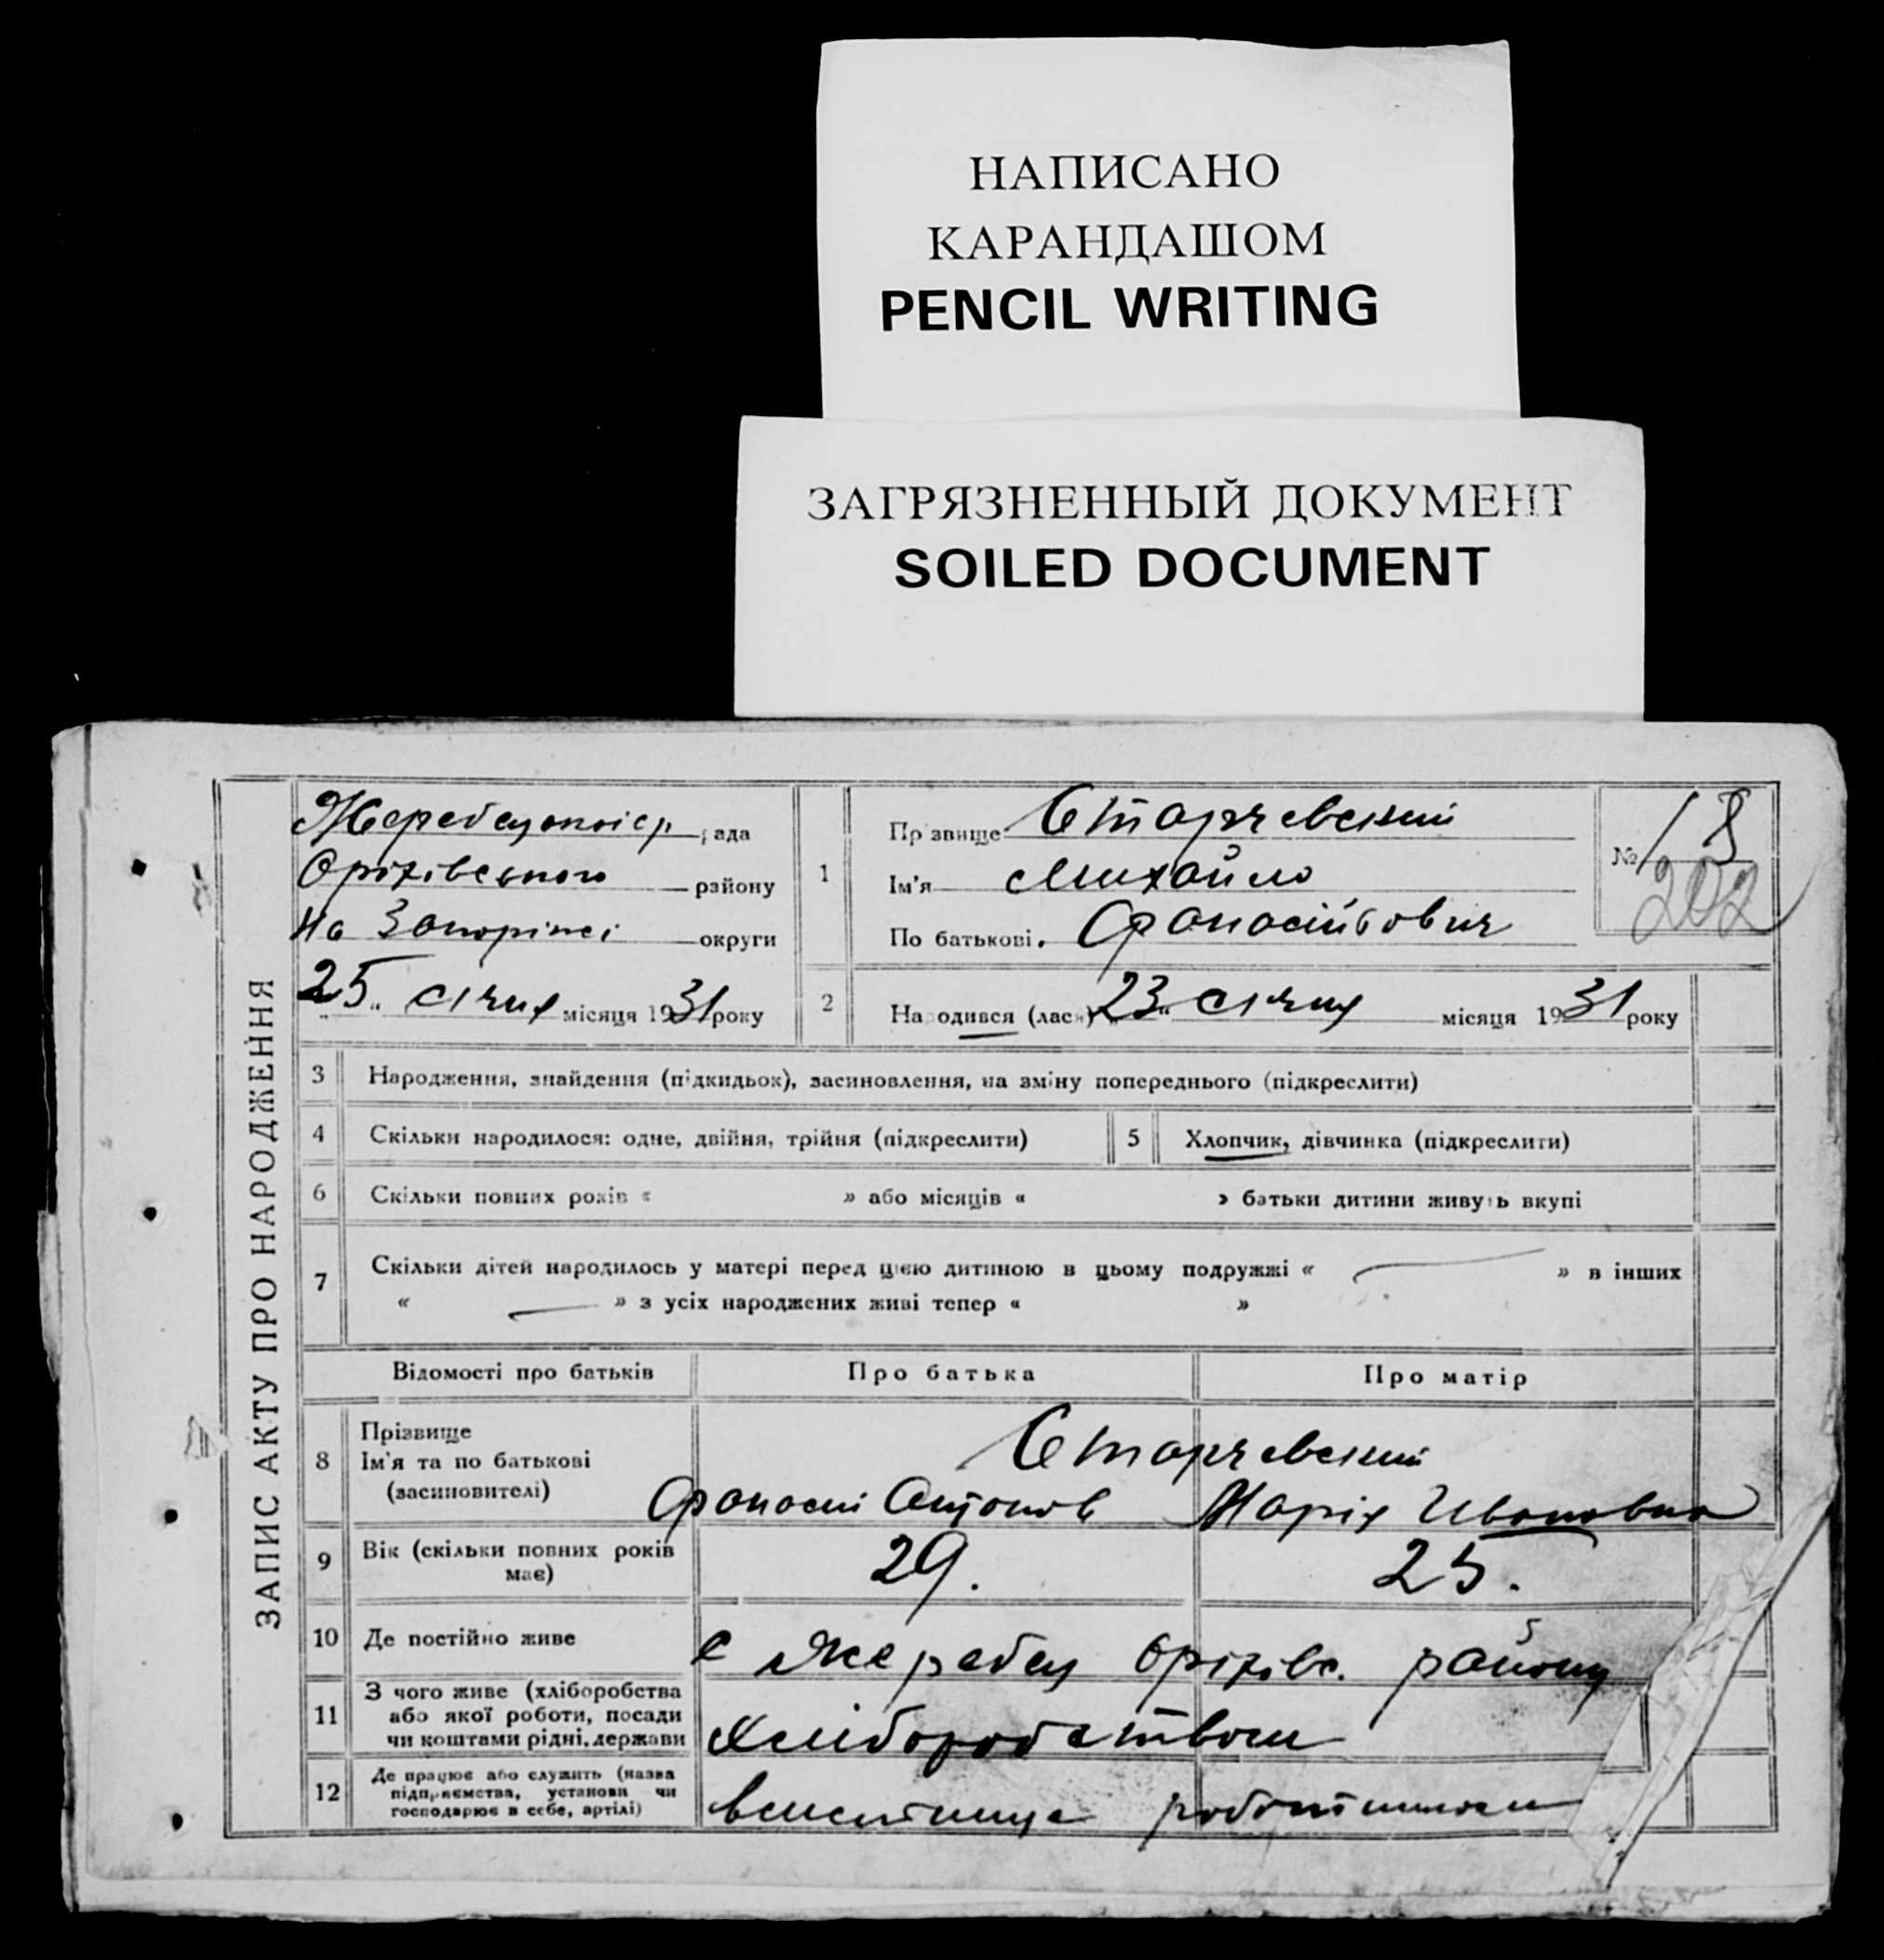 НАПИСАНО
КАРАНДАШОМ
PENCIL WRITING
ЗАГРЯЗНЕННЫЙ ДОКУМЕНТ
SOILED DOCUMENT
ЗАПИС АКТУ ПРО НАРОДЖЕННЯ
рада
Оріхівського району
На Запоріжжі округи
25 " січня місяця 1931 року
1
Прізвище Старчевский
Ім'я Михайло
По батькові. Афанасійович
№ 18
202
2 Народився (лася) 23 " січня місяця 1931 року
3 Народження, знайдення (підкидьок), засиновлення, на зміну попереднього (підкреслити)
4 Скільки народилося: одне, двійня, трійня (підкреслити) 5 Хлопчик, дівчинка (підкреслити)
6 Скільки повних років « » або місяців « » батьки дитини живуть вкупі
7 Скільки дітей народилось у матері перед цією дитиною в цьому подружжі « — » в інших
« — » з усіх народжених живі тепер « »
Відомості про батьків Про батька Про матір
8 Прізвище
Ім'я та по батькові
(засиновителі)
Старчевский
Афанасий Антонов Марія Ивановна
9 Вік (скільки повних років має) 29. 25.
10 Де постійно живе с Жеребец Оріхівс. району
11 З чого живе (хліборобства
або якої роботи, посади
чи коштами рідні, держави
хліборобством
12 Де працює або служить (назва
підприємства, установи чи
господарює в себе, артілі)